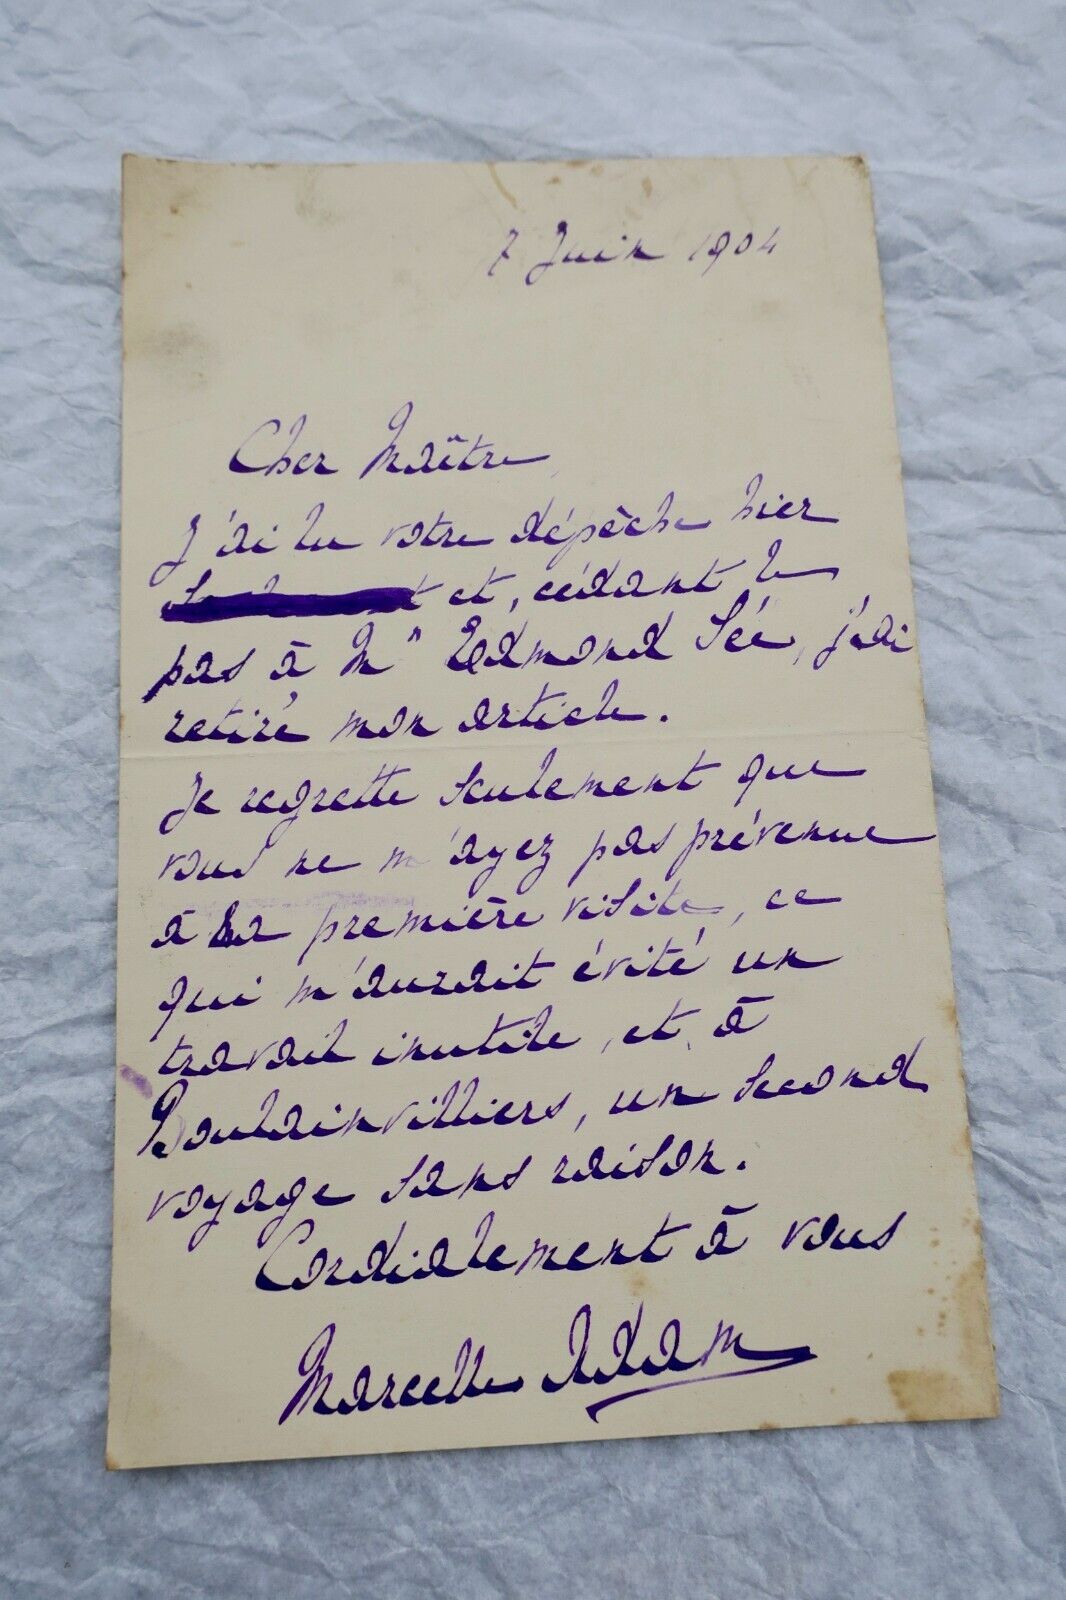 7 Juin 1904
Cher Maître,
J'ai lu votre dépêche hier
et, cédant le
pas à Mr Edmond Sée, j'ai
retiré mon article.
Je regrette seulement que
vous ne m'ayez pas prévenue
à la première visite, ce
qui m'aurait évité un
travail inutile, et, à
Boulainvilliers, un second
voyage sans raison.
Cordialement à vous
Marcelle Adam